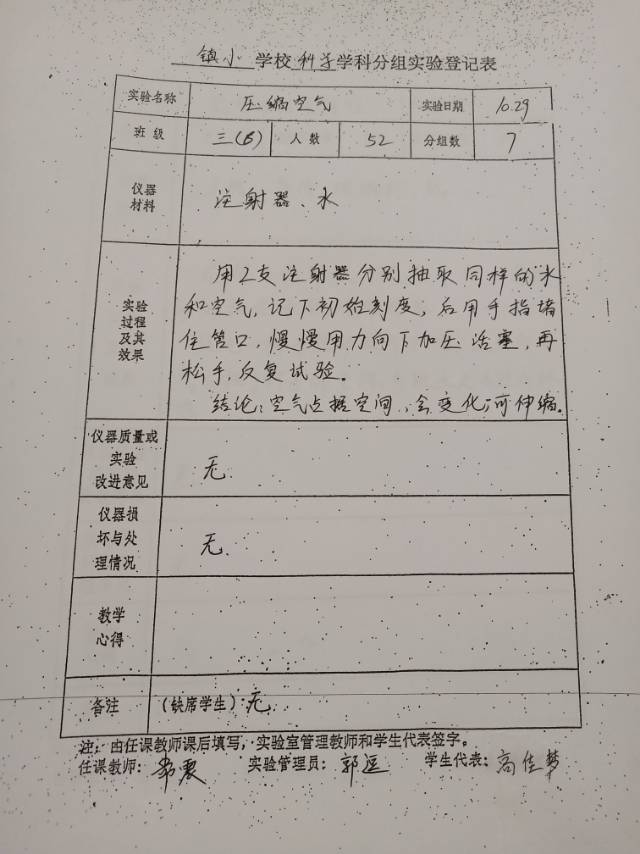 镇小 学校 科学 学科分组实验登记表
实验名称 压缩空气 实验日期 10.29
班级 三(6) 人数 52 分组数 7
仪器
材料
注射器、水
实验
过程
及其
效果
用2支注射器分别抽取同样的水
和空气,记下初始刻度,后用手指堵
住管口,慢慢用力向下加压活塞,再
松手,反复试验。
结论:空气占据空间,会变化,可伸缩。
仪器质量或
实验
改进意见
无.
仪器损
坏与处
理情况
无.
教学
心得
备注 (缺席学生):无.
注:由任课教师课后填写,实验室管理教师和学生代表签字。
任课教师: 实验管理员:郭 学生代表:高佳梦